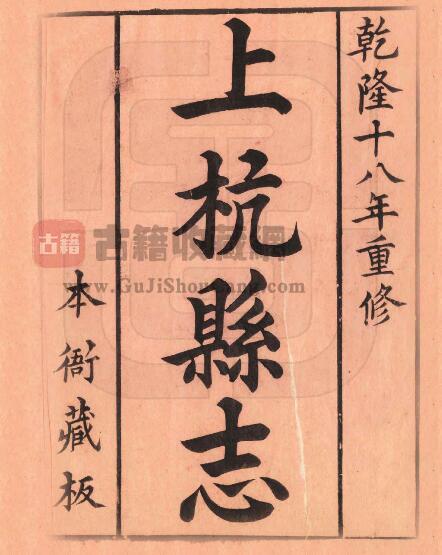 乾隆十八年重修
上杭縣志
本衙藏板
古籍
古籍收藏網
www.GuJiShoucang.com